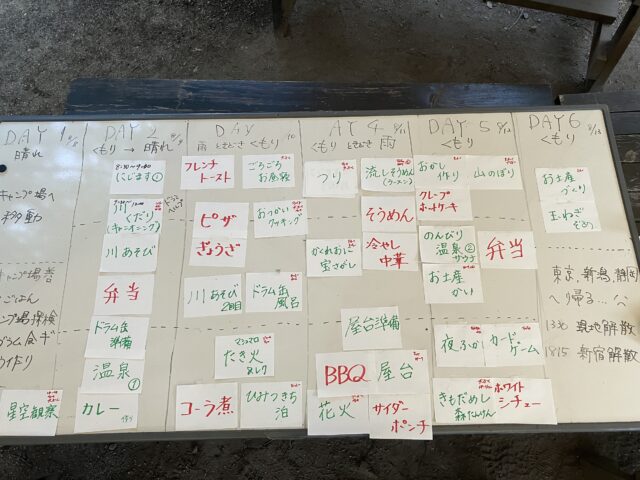 DAY 1 8/8
晴れ
キャンプ場へ
移動
キャンプ場着
ごはん
ンプ場探検
星空観察
DAY 2 8/9
くもり → 晴れ
8:10~9:40
にじます①
川くだり
(キャニオニング)
川あそび
弁当
ドラム缶
準備
温泉
①
カレー
DAY
10
雨 ときどき くもり
フレンチ
トースト
ごろごろ
お昼寝
ピザ
おつかい
クッキング
ぎょうざ
川あそび
2回目
ドラム缶
風呂
マシュマロ
たき火
コーラ煮
ひみつきち
泊
AY 4 8/11
くもり ときどき 雨
つり
流しそうめん
(ラーメン)
そうめん
かくれおに
宝さがし
冷やし
中華
屋台準備
BBQ
屋台
花火
サイダー
ポンチ
DAY 5 8/12
くもり
おかし
作り
山のぼり
クレープ
ホットケーキ
のんびり
温泉②
サウナ
弁当
お土産
かい
夜ふかし
カード・
ゲーム
きもだめし
森たんけん
ホワイト
シチュー
DAY 6 8/13
くもり
お土産
づくり
玉ねぎ
東京,新潟,静岡
へ帰る...
1330 現地解散
1815 新宿解散